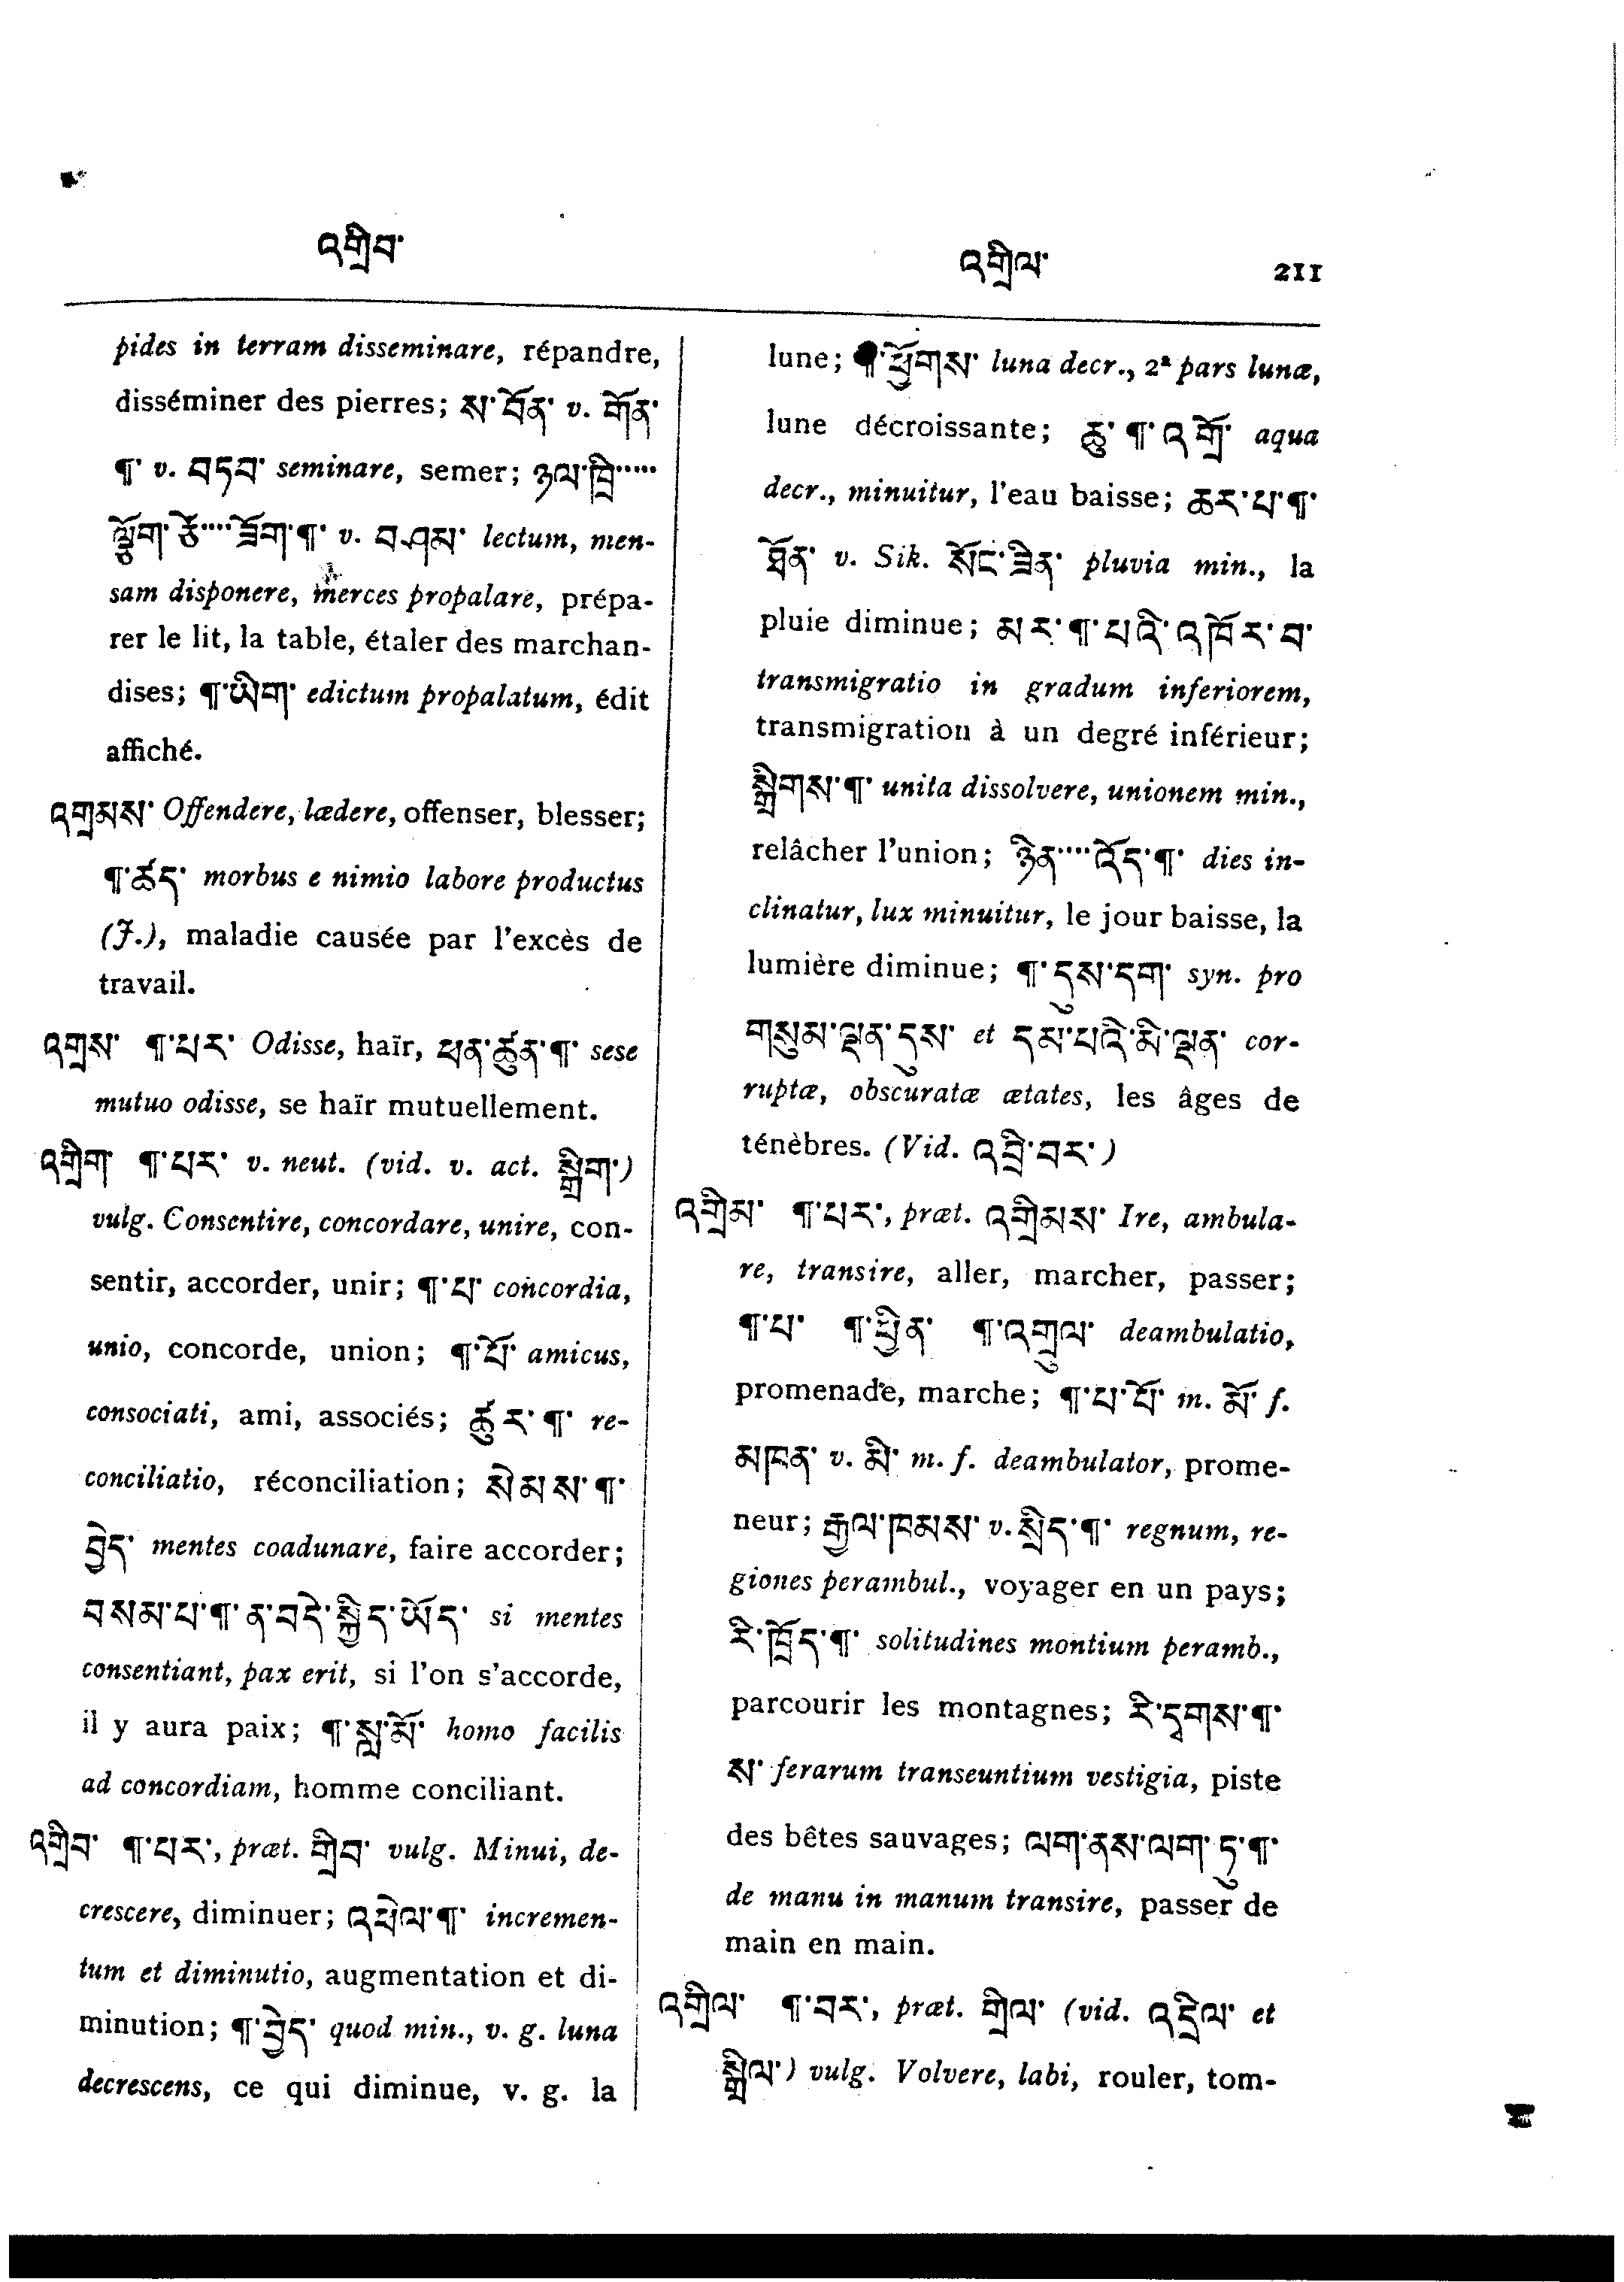 འགྲིབ་
འགྲིལ་ 211
pides in terram disseminare, répandre,
disséminer des pierres; ས་བོན་ v. གོན་
¶་ v. བདབ་ seminare, semer; ཉལ་ཁྲི་····
ལྕོག་ཙེ་···· ཟོག་¶་ v. བཤམ་ lectum, men-
sam disponere, merces propalare, prépa-
rer le lit, la table, étaler des marchan-
dises; ¶་ཡིག་ edictum propalatum, édit
affiché.
འགྲམས་ Offendere, lædere, offenser, blesser;
¶་ཚད་ morbus e nimio labore productus
(J.), maladie causée par l'excès de
travail.
འགྲས་ ¶་པར་ Odisse, haïr, ཕན་ཚུན་¶་ sese
mutuo odisse, se haïr mutuellement.
འགྲིག་ ¶་པར་ v. neut. (vid. v. act. སྒྲིག་)
vulg. Consentire, concordare, unire, con-
sentir, accorder, unir; ¶་པ་ concordia,
unio, concorde, union; ¶་པོ་ amicus,
consociati, ami, associés; ཚུར་¶་ re-
conciliatio, réconciliation; སེམས་¶་
བྱེད་ mentes coadunare, faire accorder;
བསམ་པ་¶་ན་བདེ་སྐྱིད་ཡོད་ si mentes
consentiant, pax erit, si l'on s'accorde,
il y aura paix; ¶་སླ་མོ་ homo facilis
ad concordiam, homme conciliant.
འགྲིབ་ ¶་པར་, præt. གྲིབ་ vulg. Minui, de-
crescere, diminuer; འཕེལ་¶་ incremen-
tum et diminutio, augmentation et di-
minution; ¶་བྱེད་ quod min., v. g. luna
decrescens, ce qui diminue, v. g. la
lune; ¶་ཕྱོགས་ luna decr., 2ª pars lunæ,
lune décroissante; ཆུ་¶་འགྲོ་ aqua
decr., minuitur, l'eau baisse; ཆར་པ་¶་
ཐོན་ v. Sik. སོང་ཟིན་ pluvia min., la
pluie diminue; མར་¶་པའི་འཁོར་བ་
transmigratio in gradum inferiorem,
transmigration à un degré inférieur;
སྒྲིགས་¶་ unita dissolvere, unionem min.,
relâcher l'union; ཉིན་···· འོད་¶་ dies in-
clinatur, lux minuitur, le jour baisse, la
lumière diminue; ¶་དུས་དག་ syn. pro
གསུམ་ལྡན་དུས་ et དམ་པའི་མི་ལྡན་ cor-
ruptæ, obscuratæ ætates, les âges de
ténèbres. (Vid. འབྲི་བར་)
འགྲིམ་ ¶་པར་, præt. འགྲིམས་ Ire, ambula-
re, transire, aller, marcher, passer;
¶་པ་ ¶་ཕྱིན་ ¶་འགྲུལ་ deambulatio,
promenade, marche; ¶་པ་པོ་ m. མོ་ f.
མཁན་ v. མི་ m. f. deambulator, prome-
neur; རྒྱལ་ཁམས་ v. སྲིད་¶་ regnum, re-
giones perambul., voyager en un pays;
རི་ཁྲོད་¶་ solitudines montium peramb.,
parcourir les montagnes; རི་དྭགས་¶་
ས་ ferarum transeuntium vestigia, piste
des bêtes sauvages; ལག་ནས་ལག་ཏུ་¶་
de manu in manum transire, passer de
main en main.
འགྲིལ་ ¶་བར་, præt. གྲིལ་ (vid. འདྲིལ་ et
སྒྲིལ་) vulg. Volvere, labi, rouler, tom-